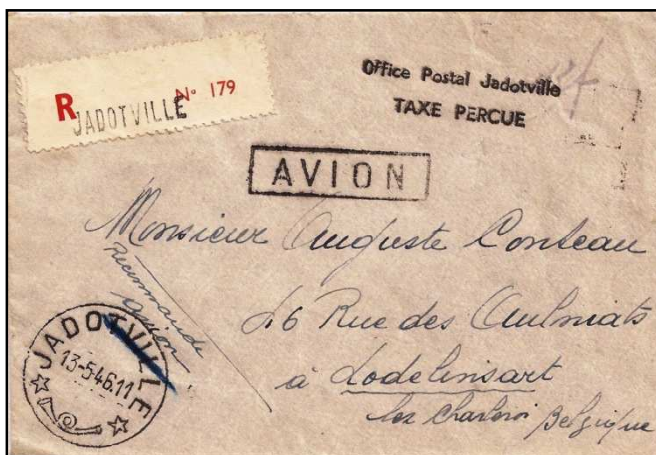 R N° 179
JADOTVILLE
Office Postal Jadotville
TAXE PERCUE
AVION
Monsieur Auguste Conteau
46 Rue des Aulniats
à Lodelinsart
lez Charleroi Belgique
Recommandé
avion
JADOTVILLE
13-5.46.11